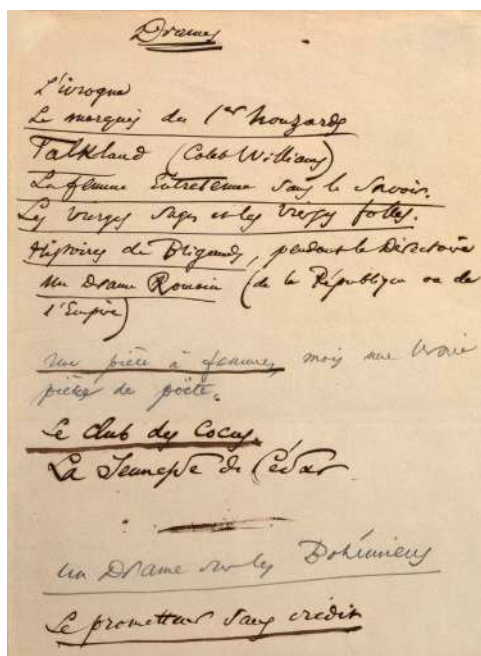 Drames
L'ivrogne
Le marquis du 1er houzards
Falkland (Caleb Williams)
La femme Entretenue sans le savoir.
Les vierges sages et les vierges folles.
Histoires de Brigands, pendant le Directoire
Un Drame Romain (de la République ou de
l'Empire)
Une pièce à femmes, mais une vraie
pièce de poëte.
Le club des Cocus.
La Jeunesse de César
Un Drame sur les Bohémiens
Le prometteur sans crédit